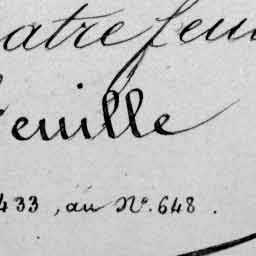 atre feui
feuille
433, au N°. 648.